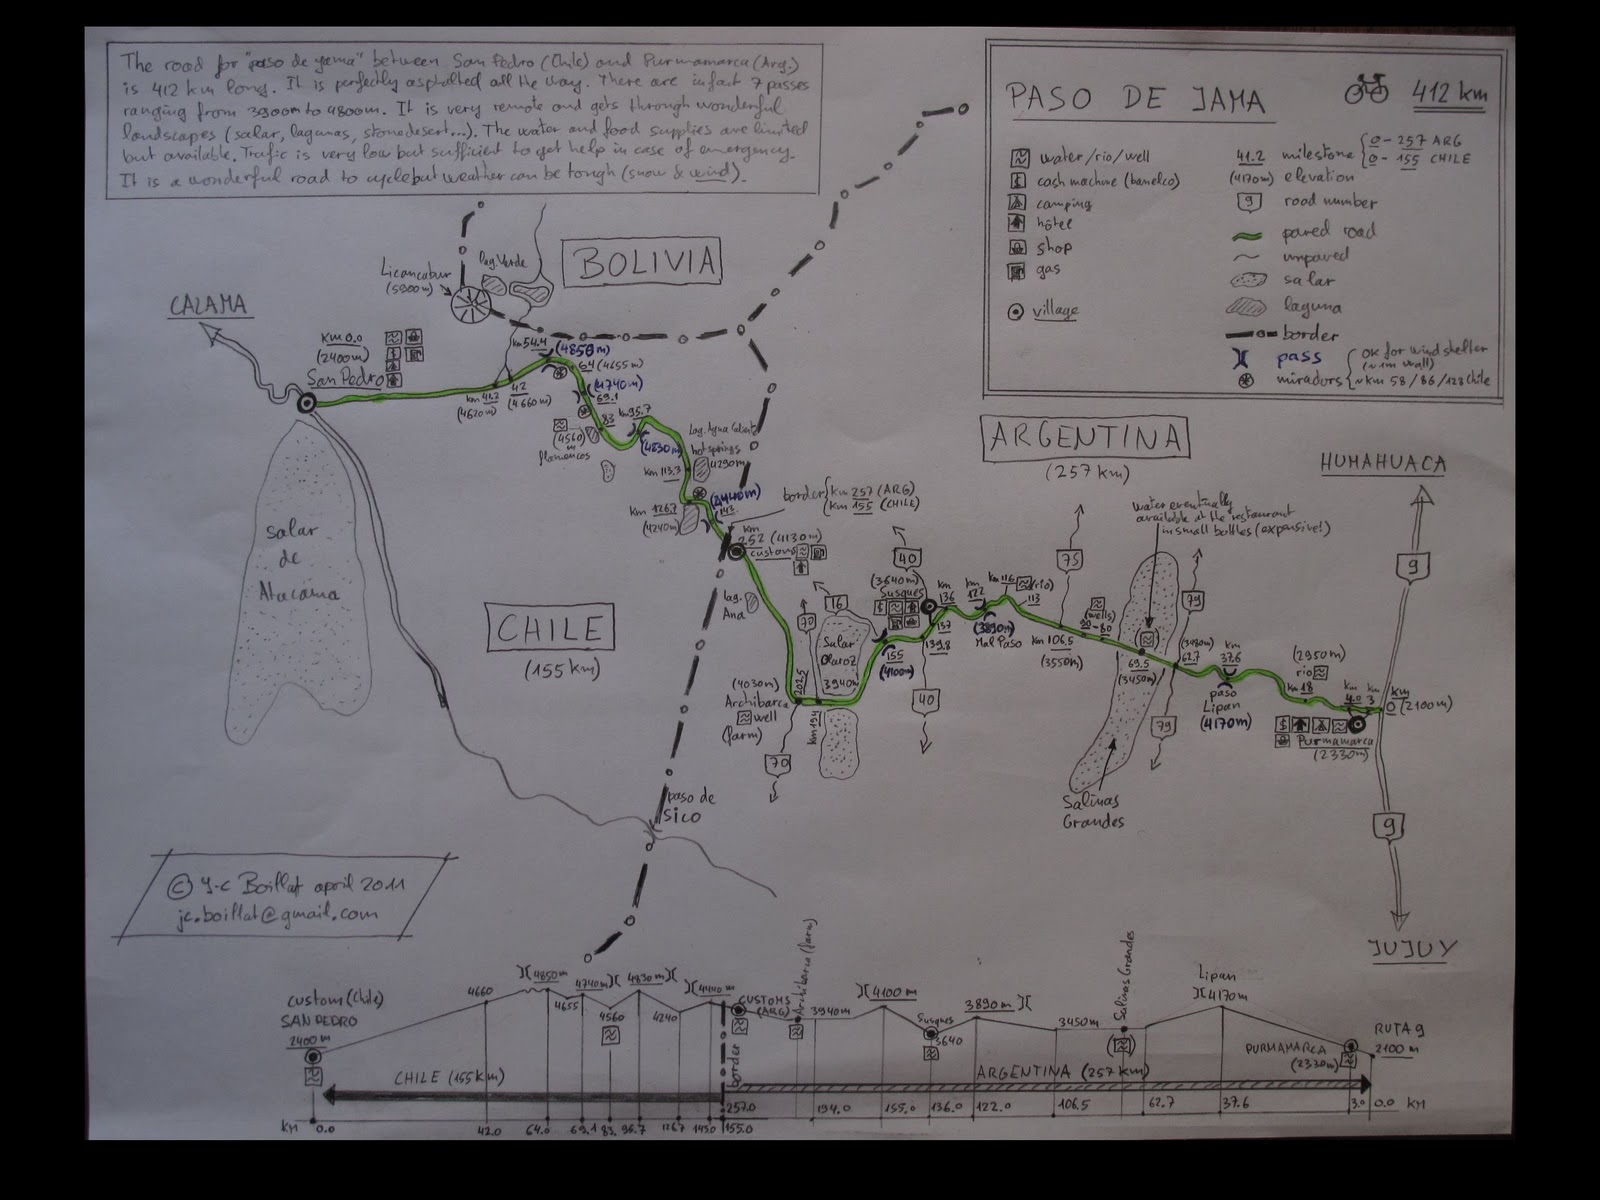 The road for "paso de yama" between San Pedro (Chile) and Purmamarca (Arg.)
is 412 km long. It is perfectly asphalted all the way. There are in fact 7 passes
ranging from 3900m to 4800m. It is very remote and gets through wonderful
landscapes (salar, lagunas, stone desert...). The water and food supplies are limited
but available. Trafic is very low but sufficient to get help in case of emergency.
It is a wonderful road to cycle but weather can be tough (snow & wind).
PASO DE JAMA
412 km
water/rio/well
cash machine (banelco)
camping
hôtel
shop
gas
village
41.2 milestone { 0 - 257 ARG
0 - 155 CHILE
(4170m) elevation
9 road number
paved road
unpaved
salar
laguna
border
pass
miradors
ok for wind shelter
(~1m wall)
~km 58/86/128 Chile
BOLIVIA
Licancabur
(5900m)
lag. Verde
CALAMA
km 0.0
(2400m)
San Pedro
km 41.2
(4620m)
42
(4660m)
km 54.4
(4850m)
64 (4655m)
(4740m)
69.1
83
(4560)
m
flamencos
km 95.7
(4830m)
hot springs
4290m
km 113.3
km 126.7
(4240m)
(4440m)
143
border { km 257 (ARG)
km 155 (CHILE)
km
252 (4130m)
customs
lag.
Ana
Salar
de
Atacama
CHILE
(155 km)
paso de
Sico
ARGENTINA
(257 km)
HUMAHUACA
9
9
JUJUY
water eventually
available at the restaurant
in small bottles (expensive!)
(4030m)
Archibarca
well
(farm)
202.5
km 194
70
70
16
Salar
Olaroz
3940m
155
(4100m)
40
(3640m)
Susques
40
km
136
137
139.8
km
122
(3890m)
Mal Paso
km 116
(rio)
113
75
km 106.5
(3550m)
(wells)
90-80
69.5
(3450m)
79
(3430m)
62.7
79
Salinas
Grandes
km
37.6
paso
Lipan
(4170m)
(2950m)
rio
km 18
km
4.0
km
3
km
0 (2100m)
Purmamarca
(2330m)
© J-C Boillat april 2011
jc.boillat@gmail.com
custom (Chile)
SAN PEDRO
2400 m
4660
4850m
4655
4740m
4560
4830m
4240
4440m
border
CUSTOMS
(ARG)
Archibarca (farm)
3940m
4100 m
Susques
3640
3890m
3450m
Salinas Grandes
Lipan
4170m
PURMAMARCA
(2330m)
RUTA 9
2100 m
CHILE (155km)
ARGENTINA (257 km)
257.0 194.0 155.0 136.0 122.0 106.5 62.7 37.6 3.0 0.0 KM
KM 0.0 42.0 64.0 69.1 83. 95.7 126.7 143.0 155.0